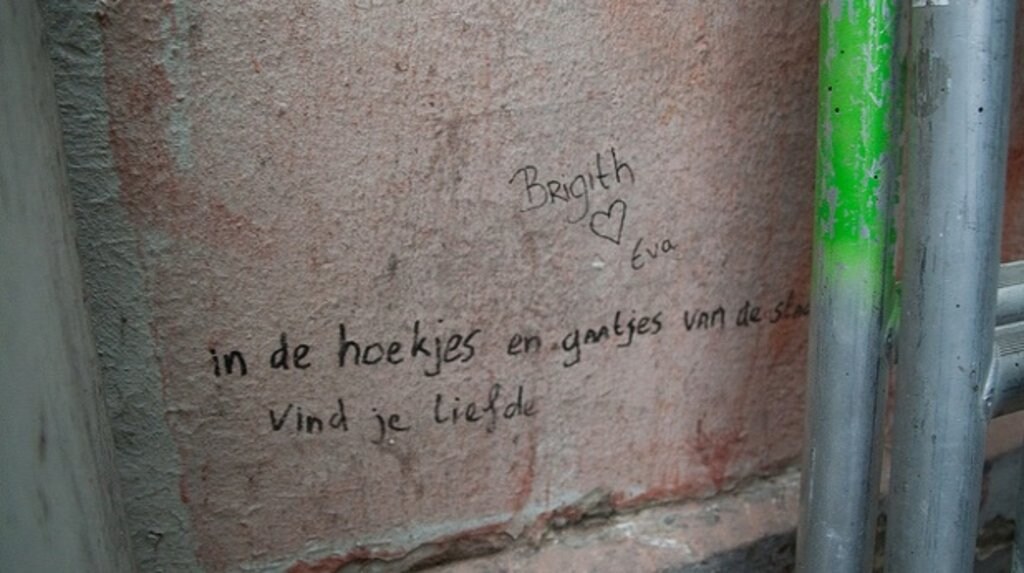 Brigith
♡
Eva
in de hoekjes en gaatjes van de
vind je liefde